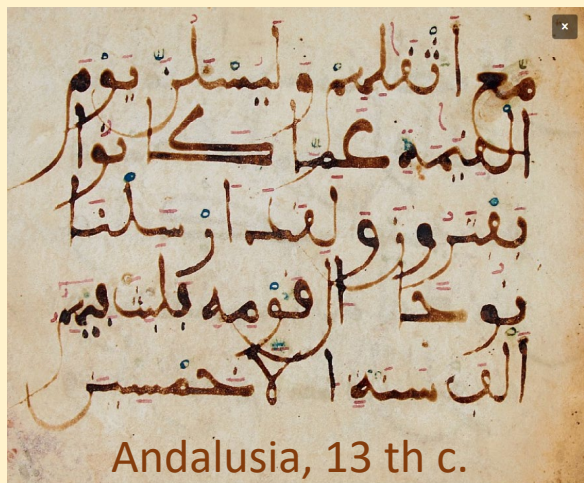 مع اثقلهم وليسلن يوم
القيمة عما كانوا
يفترون ولقد ارسلنا
نوحا الى قومه فلبث فيهم
الف سنة الا خمسين
Andalusia, 13 th c.